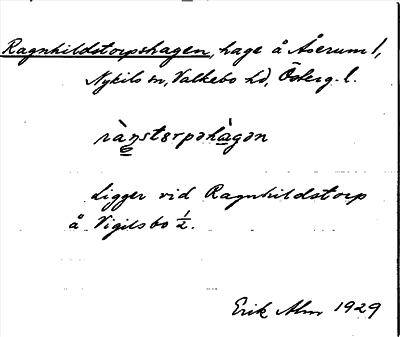 Ragnhildstorpshagen, hage å Åserum 1,
Nykils sn, Valkebo hd, Österg. l.
rànstorpəhàgən
Ligger vid Ragnhildstorp
å Vigilsbo 1/2.
Erik Alm 1929